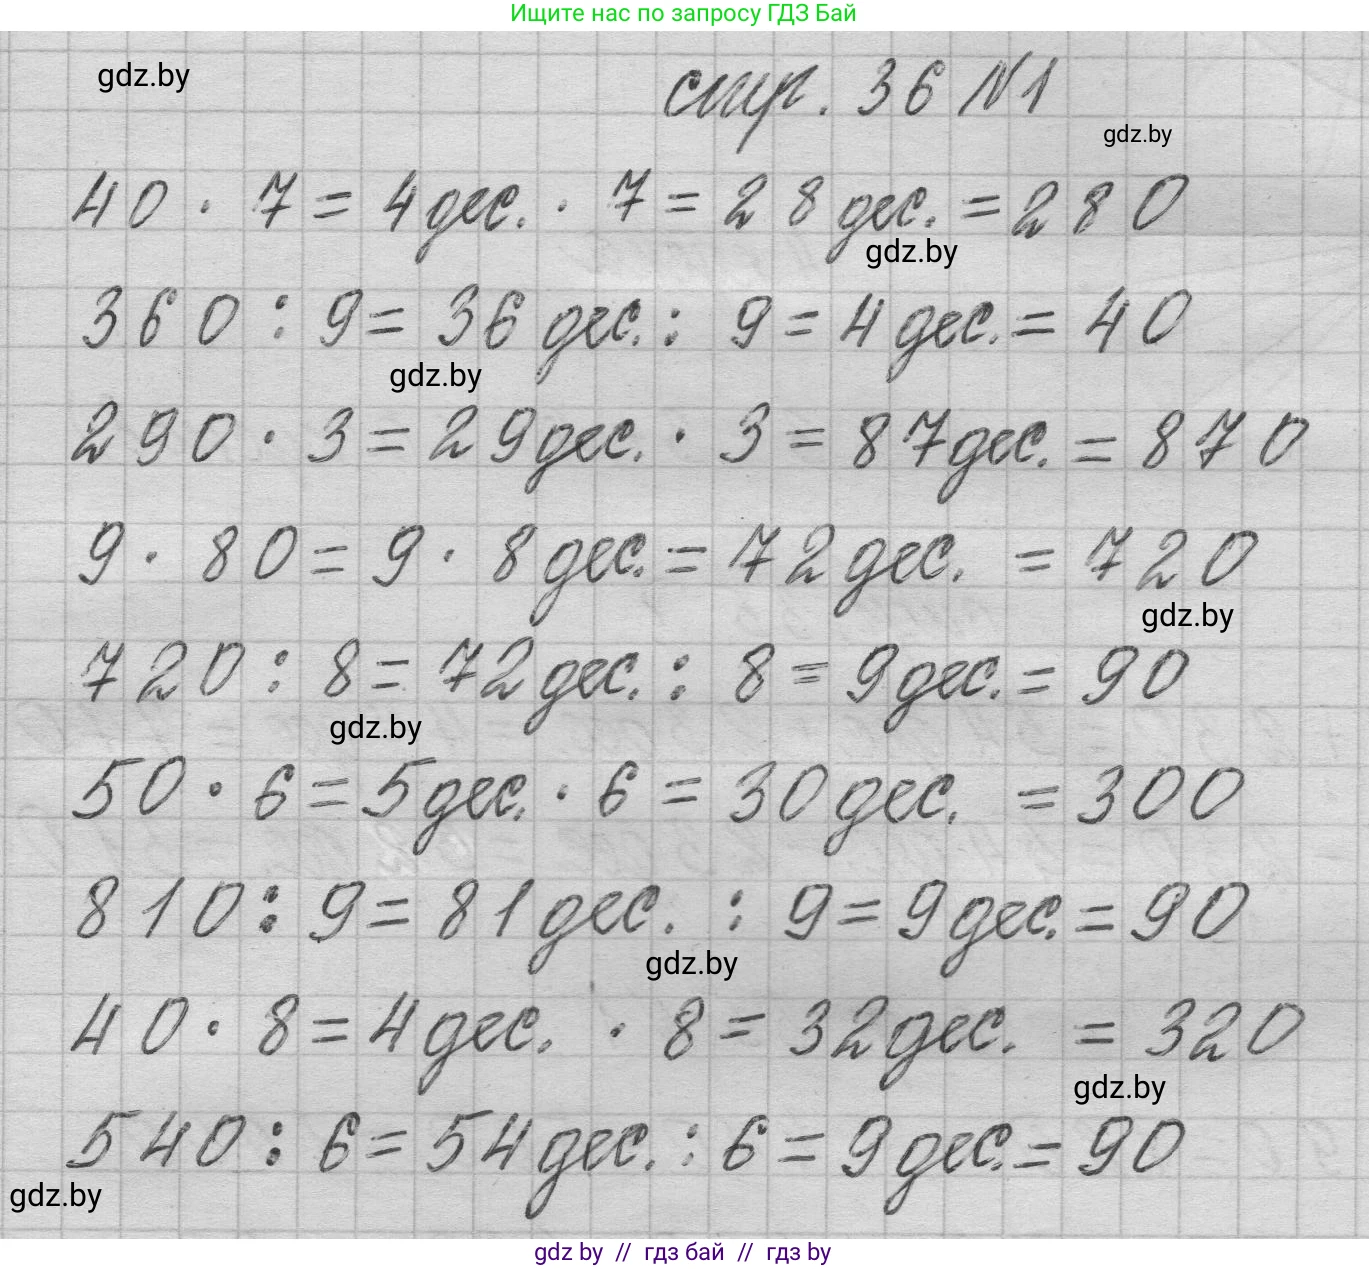 Ищите нас по запросу ГДЗ Бай
gdz.by
стр. 36 №1
gdz.by
40 · 7 = 4 дес. · 7 = 28 дес. = 280
gdz.by
360 : 9 = 36 дес. : 9 = 4 дес. = 40
gdz.by
290 · 3 = 29 дес. · 3 = 87 дес. = 870
9 · 80 = 9 · 8 дес. = 72 дес. = 720
gdz.by
720 : 8 = 72 дес. : 8 = 9 дес. = 90
gdz.by
50 · 6 = 5 дес. · 6 = 30 дес. = 300
810 : 9 = 81 дес. : 9 = 9 дес. = 90
gdz.by
40 · 8 = 4 дес. · 8 = 32 дес. = 320
gdz.by
540 : 6 = 54 дес. : 6 = 9 дес. = 90
gdz.by
gdz by // гдз бай // гдз by